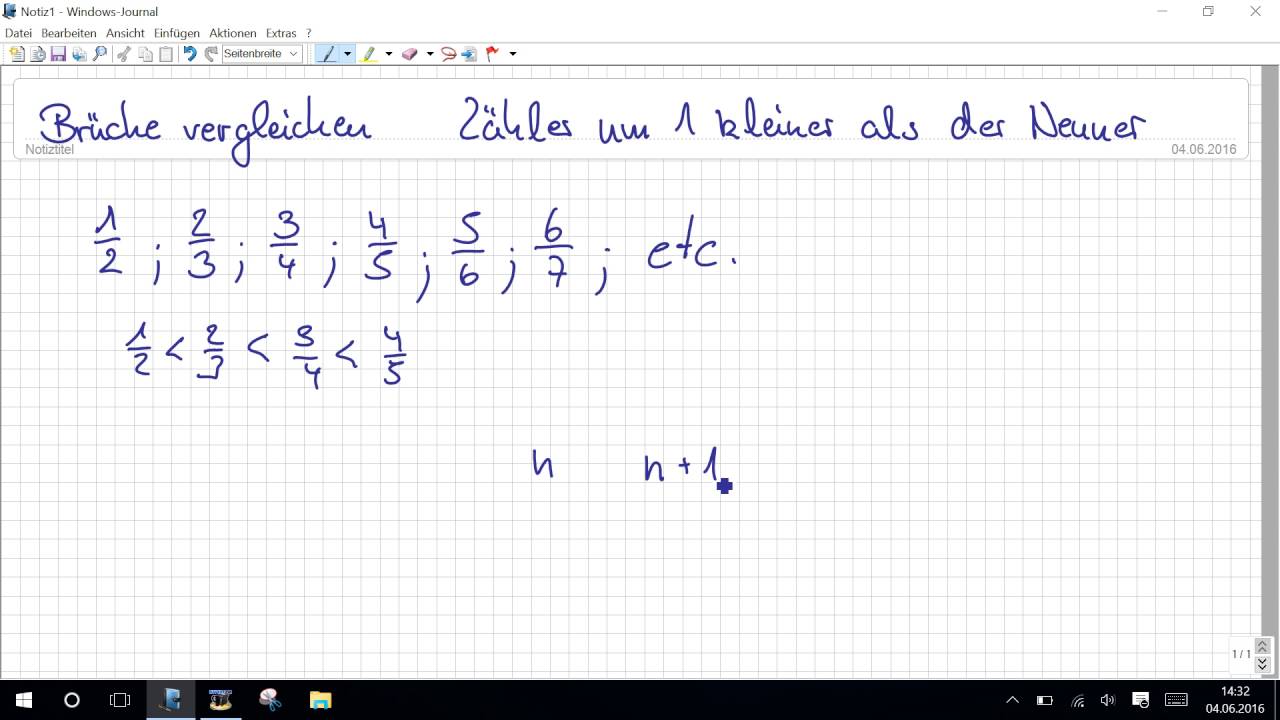 Notiz1 - Windows-Journal
Datei Bearbeiten Ansicht Einfügen Aktionen Extras ?
Seitenbreite
Brüche vergleichen Zähler um 1 kleiner als der Nenner
Notiztitel 04.06.2016
1/2 ; 2/3 ; 3/4 ; 4/5 ; 5/6 ; 6/7 ; etc.
1/2 < 2/3 < 3/4 < 4/5
n n + 1
1 / 1
14:32
04.06.2016